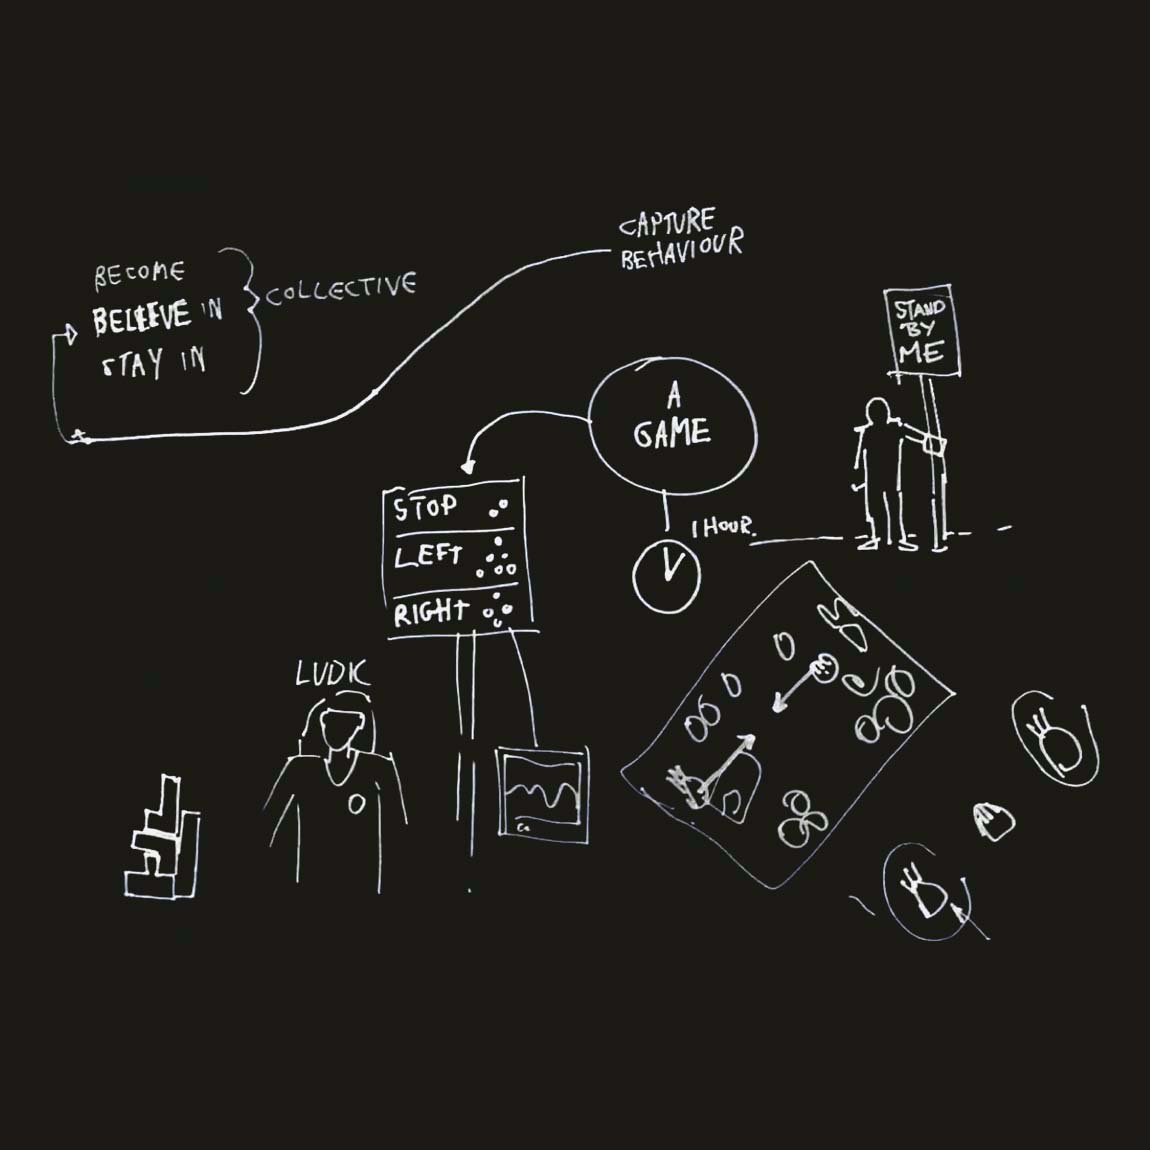 CAPTURE
BEHAVIOUR
BECOME
BELIEVE IN
STAY IN
COLLECTIVE
STAND
BY
ME
A
GAME
1 HOUR.
STOP
LEFT
RIGHT
LUDIC